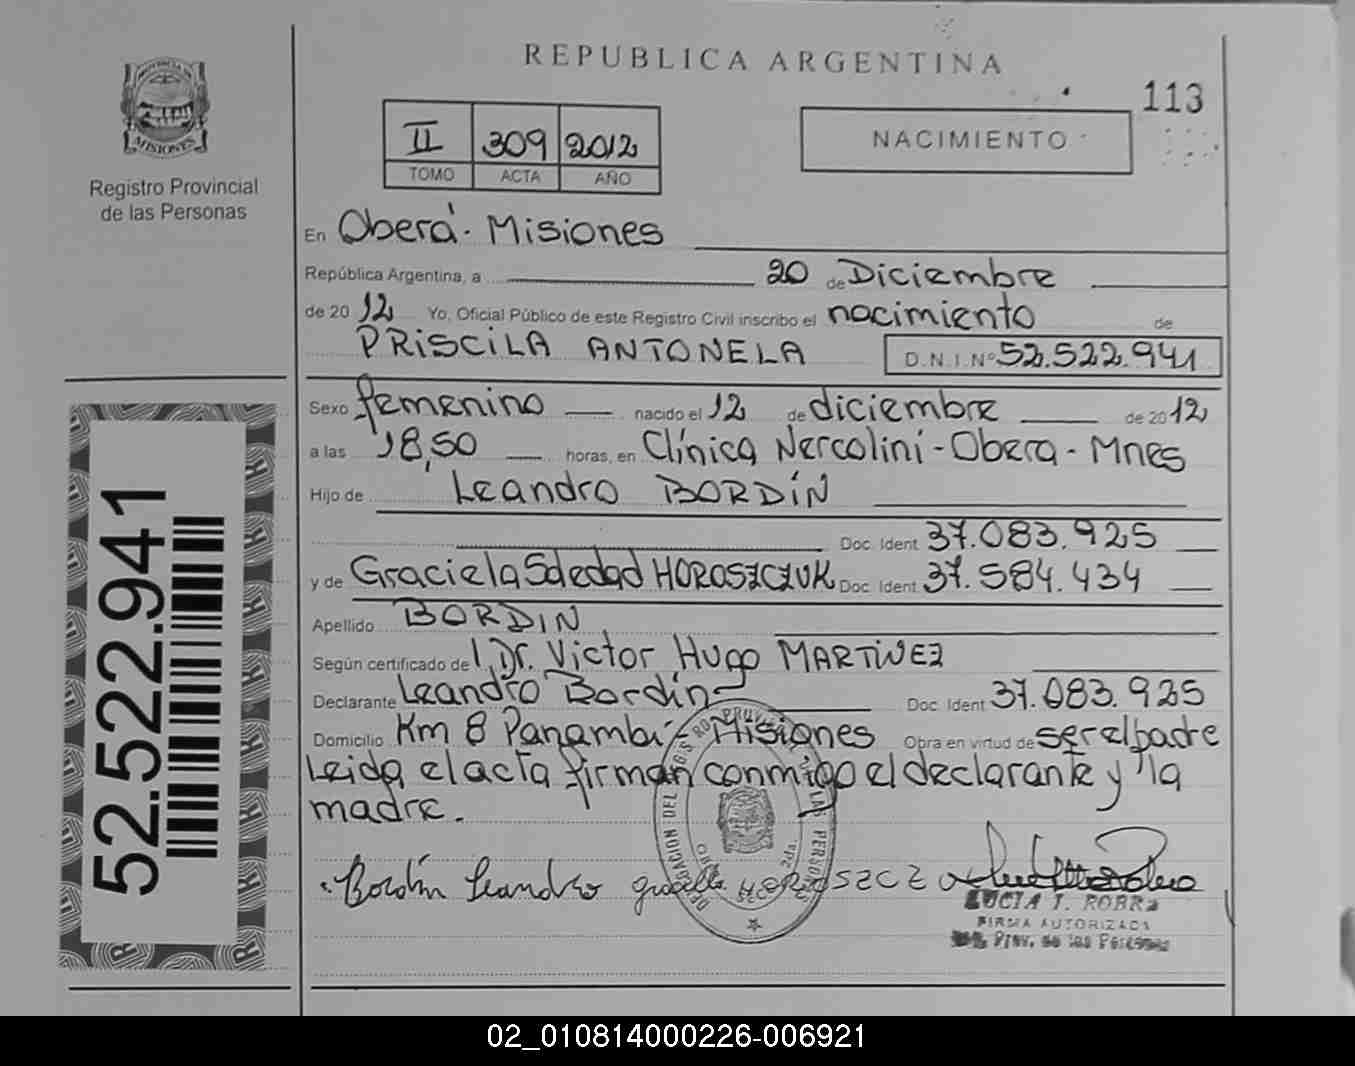 REPUBLICA ARGENTINA
113
PROVINCIA DE
MISIONES
Registro Provincial
de las Personas
II 309 2012
TOMO ACTA AÑO
NACIMIENTO
En Oberá - Misiones
República Argentina, a 20 de Diciembre
de 2012 Yo, Oficial Público de este Registro Civil inscribo el nacimiento de
PRISCILA ANTONELA D.N.I. Nº 52.522.941
Sexo femenino nacido el 12 de diciembre de 2012
a las 18,50 horas, en Clínica Nercolini - Obera - Mnes
Hijo de Leandro BORDÍN
Doc. Ident 37.083.925
y de Graciela Soledad HOROSZCZUK Doc. Ident 37.584.434
Apellido BORDIN
Según certificado del Dr. Victor Hugo MARTINEZ
Declarante Leandro Bordín Doc. Ident 37.083.925
Domicilio Km 8 Panambí - Misiones Obra en virtud de ser el padre
Leida el acta firman conmigo el declarante y la
madre.
Bordín Leandro graciela HOROSZCZ
LUCIA T. ROBR
FIRMA AUTORIZADA
Prov. de las Personas
52.522.941
02_010814000226-006921